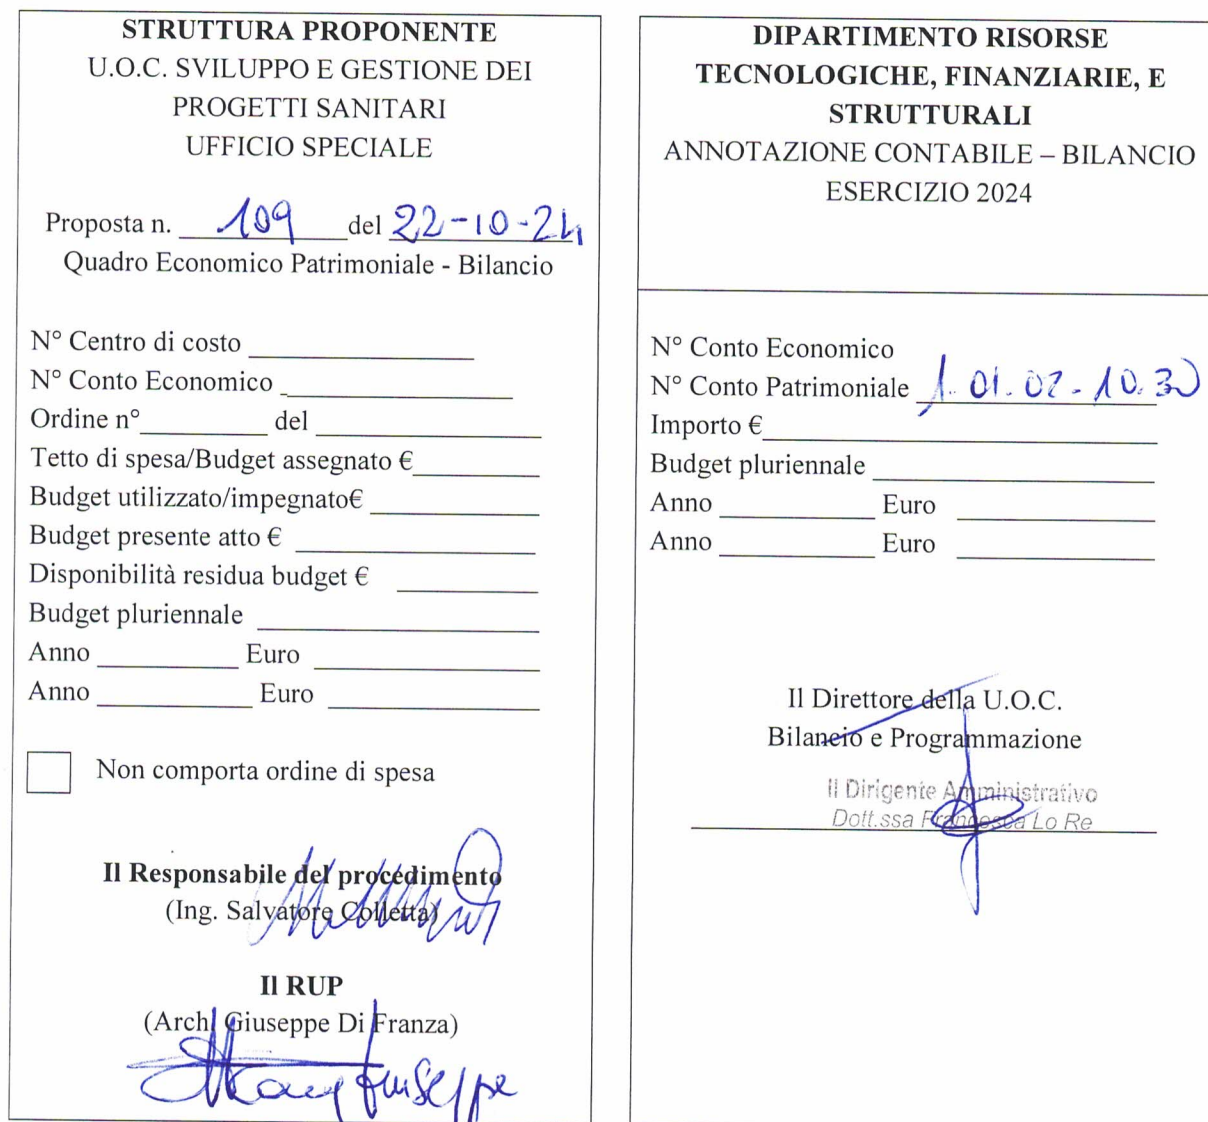 STRUTTURA PROPONENTE
U.O.C. SVILUPPO E GESTIONE DEI
PROGETTI SANITARI
UFFICIO SPECIALE
Proposta n. 109 del 22-10-24
Quadro Economico Patrimoniale - Bilancio
N° Centro di costo
N° Conto Economico
Ordine n° del
Tetto di spesa/Budget assegnato €
Budget utilizzato/impegnato€
Budget presente atto €
Disponibilità residua budget €
Budget pluriennale
Anno Euro
Anno Euro
Non comporta ordine di spesa
Il Responsabile del procedimento
(Ing. Salvatore Colletta)
Il RUP
(Arch. Giuseppe Di Franza)
DIPARTIMENTO RISORSE
TECNOLOGICHE, FINANZIARIE, E
STRUTTURALI
ANNOTAZIONE CONTABILE – BILANCIO
ESERCIZIO 2024
N° Conto Economico
N° Conto Patrimoniale 1.01.02-10.30
Importo €
Budget pluriennale
Anno Euro
Anno Euro
Il Direttore della U.O.C.
Bilancio e Programmazione
Il Dirigente Amministrativo
Dott.ssa Francesca Lo Re